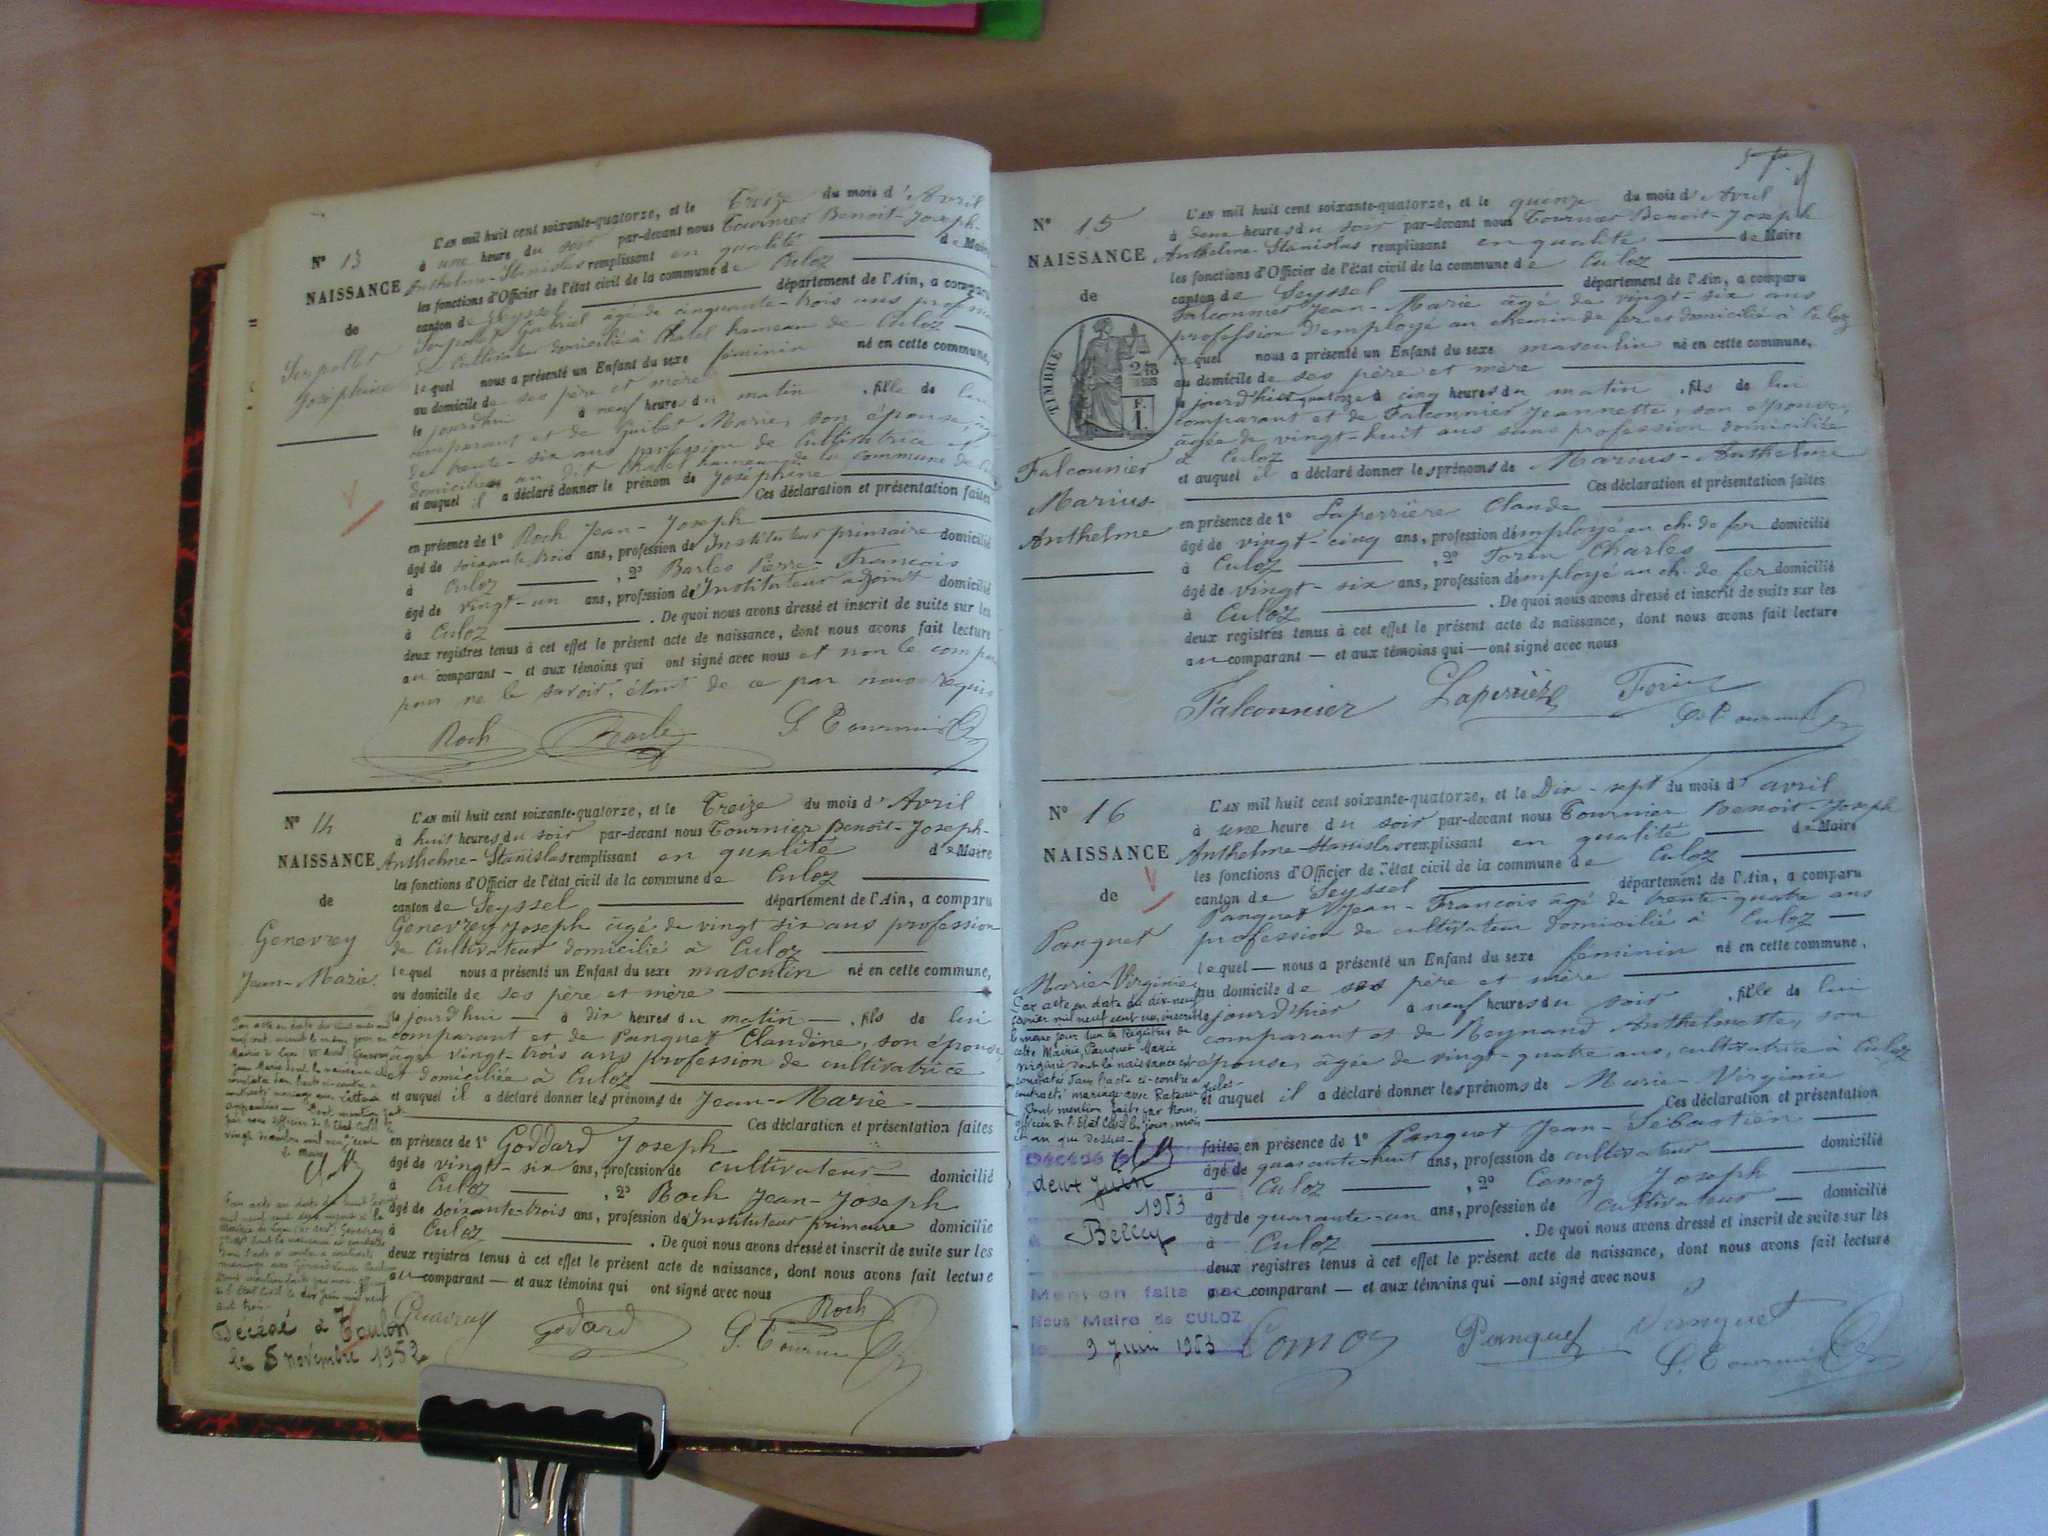 N° 13
NAISSANCE
de
Serpollet
Joséphine
L'AN mil huit cent soixante-quatorze, et le Treize du mois d'Avril
à une heure du soir par-devant nous Tournier Benoit-Joseph-
Anthelme-Stanislas remplissant en qualité de Maire
les fonctions d'Officier de l'état civil de la commune de Culoz
canton de Seyssel département de l'Ain, a comparu
Serpollet Gabriel âgé de cinquante-trois ans
de Cultivateur domicilié à Chatel hameau de Culoz
lequel nous a présenté un Enfant du sexe féminin né en cette commune,
au domicile de ses père et mère
le jourd'hui à neuf heures du matin, fille de lui
comparant et de Guillet Marie, son épouse,
de trente-six ans profession de Cultivatrice et
domiciliée au dit Chatel hameau de la commune de
et auquel il a déclaré donner le prénom de Joséphine
Ces déclaration et présentation faites
en présence de 1° Roch Jean-Joseph
âgé de soixante trois ans, profession de Instituteur primaire domicilié
à Culoz, 2° Barles Pierre-François
âgé de vingt-un ans, profession de Instituteur adjoint domicilié
à Culoz. De quoi nous avons dressé et inscrit de suite sur les
deux registres tenus à cet effet le présent acte de naissance, dont nous avons fait lecture
au comparant — et aux témoins qui ont signé avec nous et non le
pour ne le savoir, étant de ce par nous requis
Roch
N° 14
NAISSANCE
de
Genevrey
Jean-Marie
L'AN mil huit cent soixante-quatorze, et le Treize du mois d'Avril
à huit heures du soir par-devant nous Tournier Benoit-Joseph-
Anthelme-Stanislas remplissant en qualité de Maire
les fonctions d'Officier de l'état civil de la commune de Culoz
canton de Seyssel département de l'Ain, a comparu
Genevrey Joseph âgé de vingt six ans profession
de Cultivateur domicilié à Culoz
lequel nous a présenté un Enfant du sexe masculin né en cette commune,
au domicile de ses père et mère
le jourd'hui — à dix heures du matin —, fils de lui
comparant et de Panquet Claudine, son épouse
âgée vingt-trois ans profession de cultivatrice
et domiciliée à Culoz
et auquel il a déclaré donner les prénoms de Jean-Marie
Ces déclaration et présentation faites
en présence de 1° Goddard Joseph
âgé de vingt-six ans, profession de cultivateur domicilié
à Culoz, 2° Roch Jean-Joseph
âgé de soixante-trois ans, profession de Instituteur primaire domicilié
à Culoz. De quoi nous avons dressé et inscrit de suite sur les
deux registres tenus à cet effet le présent acte de naissance, dont nous avons fait lecture
au comparant — et aux témoins qui ont signé avec nous
Roch
Godard
Décédé à Toulon
le 5 novembre 1952
N° 15
NAISSANCE
de
TIMBRE
Falconnier
Marius-
Anthelme
L'AN mil huit cent soixante-quatorze, et le quinze du mois d'Avril
à deux heures du soir par-devant nous Tournier Benoit-Joseph
Anthelme-Stanislas remplissant en qualité de Maire
les fonctions d'Officier de l'état civil de la commune de Culoz
canton de Seyssel département de l'Ain, a comparu
Falconnier Jean-Marie âgé de vingt-six ans
profession d'employé au chemin de fer et domicilié à Culoz
lequel nous a présenté un Enfant du sexe masculin né en cette commune,
au domicile de ses père et mère
à cinq heures du matin, fils de lui
comparant et de Falconnier Jeannette, son épouse,
âgée de vingt-huit ans sans profession domiciliée
à Culoz
et auquel il a déclaré donner les prénoms de Marius-Anthelme
Ces déclaration et présentation faites
en présence de 1° Laperrière Claude
âgé de vingt-cinq ans, profession d'employé au ch. de fer domicilié
à Culoz, 2° Torin Charles
âgé de vingt-six ans, profession d'employé au ch. de fer domicilié
à Culoz. De quoi nous avons dressé et inscrit de suite sur les
deux registres tenus à cet effet le présent acte de naissance, dont nous avons fait lecture
au comparant — et aux témoins qui — ont signé avec nous
Falconnier Laperrière
N° 16
NAISSANCE
de
Panquet
Marie-Virginie
L'AN mil huit cent soixante-quatorze, et le Dix-sept du mois d'avril
à une heure du soir par-devant nous Tournier Benoit-Joseph
Anthelme-Stanislas remplissant en qualité de Maire
les fonctions d'Officier de l'état civil de la commune de Culoz
canton de Seyssel département de l'Ain, a comparu
Panquet Jean-François âgé de trente-quatre ans
profession de cultivateur domicilié à Culoz
lequel — nous a présenté un Enfant du sexe féminin né en cette commune,
au domicile de ses père et mère
jourd'hier à neuf heures du soir, fille de lui
comparant et de Reynaud Anthelmette, son
épouse, âgée de vingt-quatre ans, cultivatrice à Culoz
et auquel il a déclaré donner les prénoms de Marie-Virginie
Ces déclaration et présentation
faites en présence de 1° Panquet Jean-Sébastien
âgé de quarante-huit ans, profession de cultivateur domicilié
à Culoz, 2° Camoz Joseph
âgé de quarante-un ans, profession de cultivateur — domicilié
à Culoz. De quoi nous avons dressé et inscrit de suite sur les
deux registres tenus à cet effet le présent acte de naissance, dont nous avons fait lecture
au comparant — et aux témoins qui — ont signé avec nous
Panquet Panquet
deux Juin
1953
Belley
Mention faite par
Nous Maire de CULOZ
le 9 Juin 1953